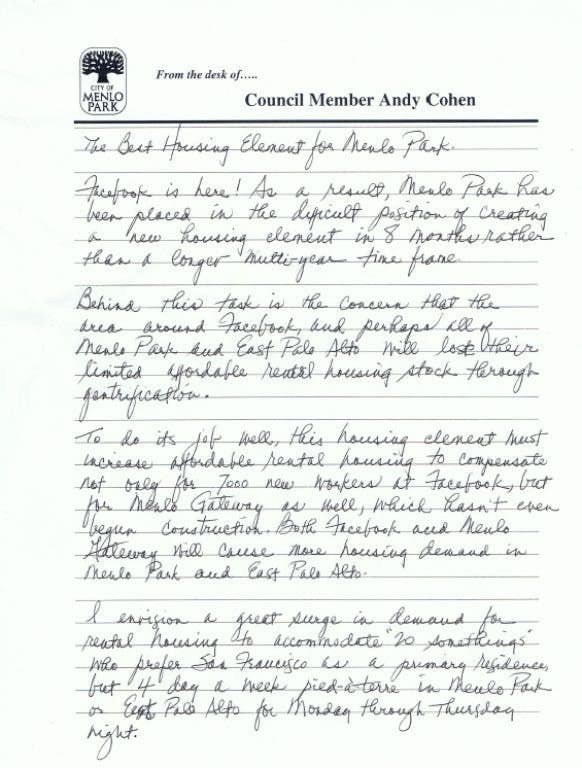 CITY OF
MENLO
PARK
From the desk of.....
Council Member Andy Cohen
The Best Housing Element for Menlo Park.
Facebook is here! As a result, Menlo Park has
been placed in the difficult position of creating
a new housing element in 8 months rather
than a longer multi-year time frame.
Behind this task is the concern that the
area around Facebook, and perhaps all of
Menlo Park and East Palo Alto will lose their
limited affordable rental housing stock through
gentrification.
To do its job well, this housing element must
increase affordable rental housing to compensate
not only for 7000 new workers at Facebook, but
for Menlo Gateway as well, which hasn't even
begun construction. Both Facebook and Menlo
Gateway will cause more housing demand in
Menlo Park and East Palo Alto.
I envision a great surge in demand for
rental housing to accommodate "20 somethings"
who prefer San Francisco as a primary residence,
but 4 day a week pied-à-terre in Menlo Park
or East Palo Alto for Monday through Thursday
night.